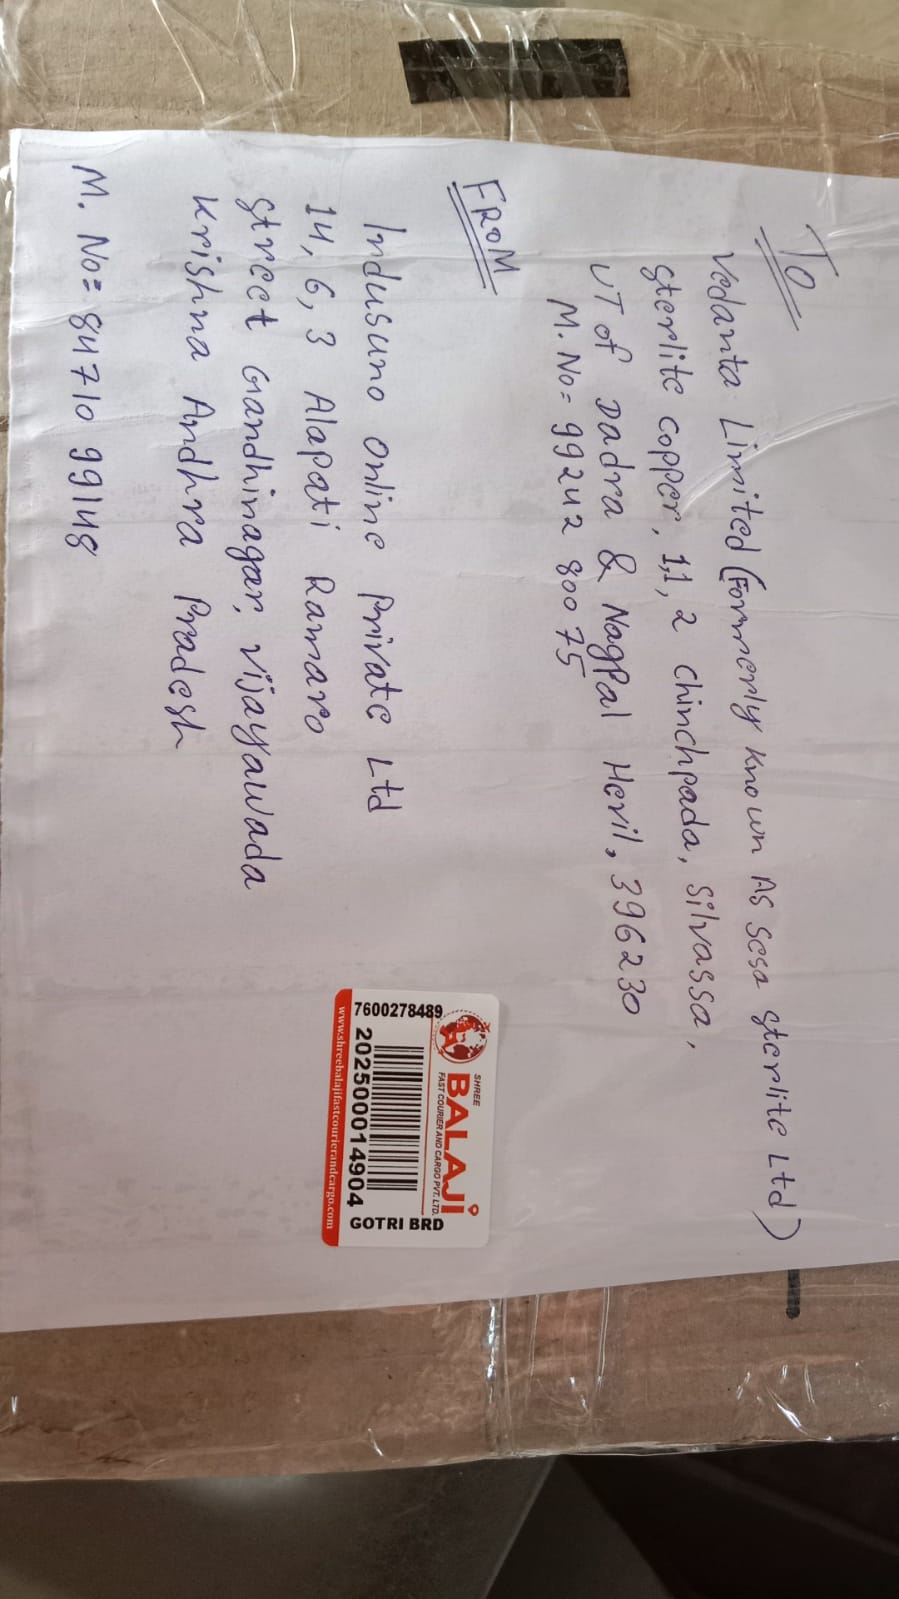 To
Vedanta Limited (Formerly Known As Sesa Sterlite Ltd)
Sterlite Copper, 1,1, 2 Chinchpada, Silvassa,
UT of Dadra & Nagpal Hevil, 396230
M. No= 99242 80075
FROM
Indusuno Online Private Ltd
14, 6, 3 Alapati Ramaro
Street Gandhinagar, Vijayawada
Krishna Andhra Pradesh
M. No= 84710 99148
SHREE
BALAJI
FAST COURIER AND CARGO PVT. LTD.
7600278489
202500014904
GOTRI BRD
www.shreebalajifastcourierandcargo.com